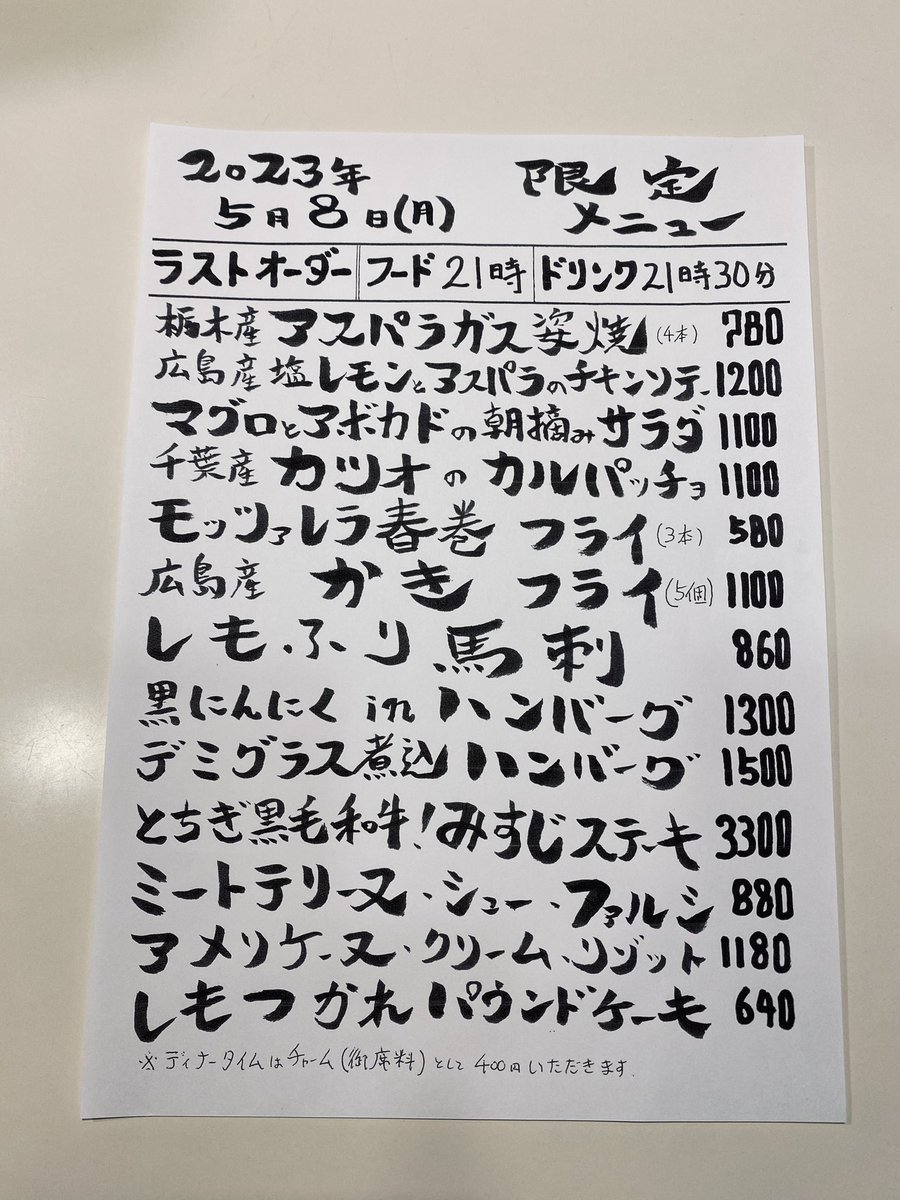 2023年
5月8日(月)
限定
メニュー
ラストオーダー フード21時 ドリンク21時30分
栃木産 アスパラガス姿焼(4本) 780
広島産塩レモンとアスパラのチキンソテー 1200
マグロとアボカドの朝摘みサラダ 1100
千葉産 カツオのカルパッチョ 1100
モッツァレラ春巻フライ(3本) 580
広島産 かきフライ(5個) 1100
しもふり馬刺 860
黒にんにく in ハンバーグ 1300
デミグラス煮込ハンバーグ 1500
とちぎ黒毛和牛!みすじステーキ 3300
ミートテリーヌ・シュー・ファルシ 880
アメリケーヌ・クリーム・リゾット 1180
しもつかれパウンドケーキ 640
※ディナータイムはチャーム(御席料)として400円いただきます.